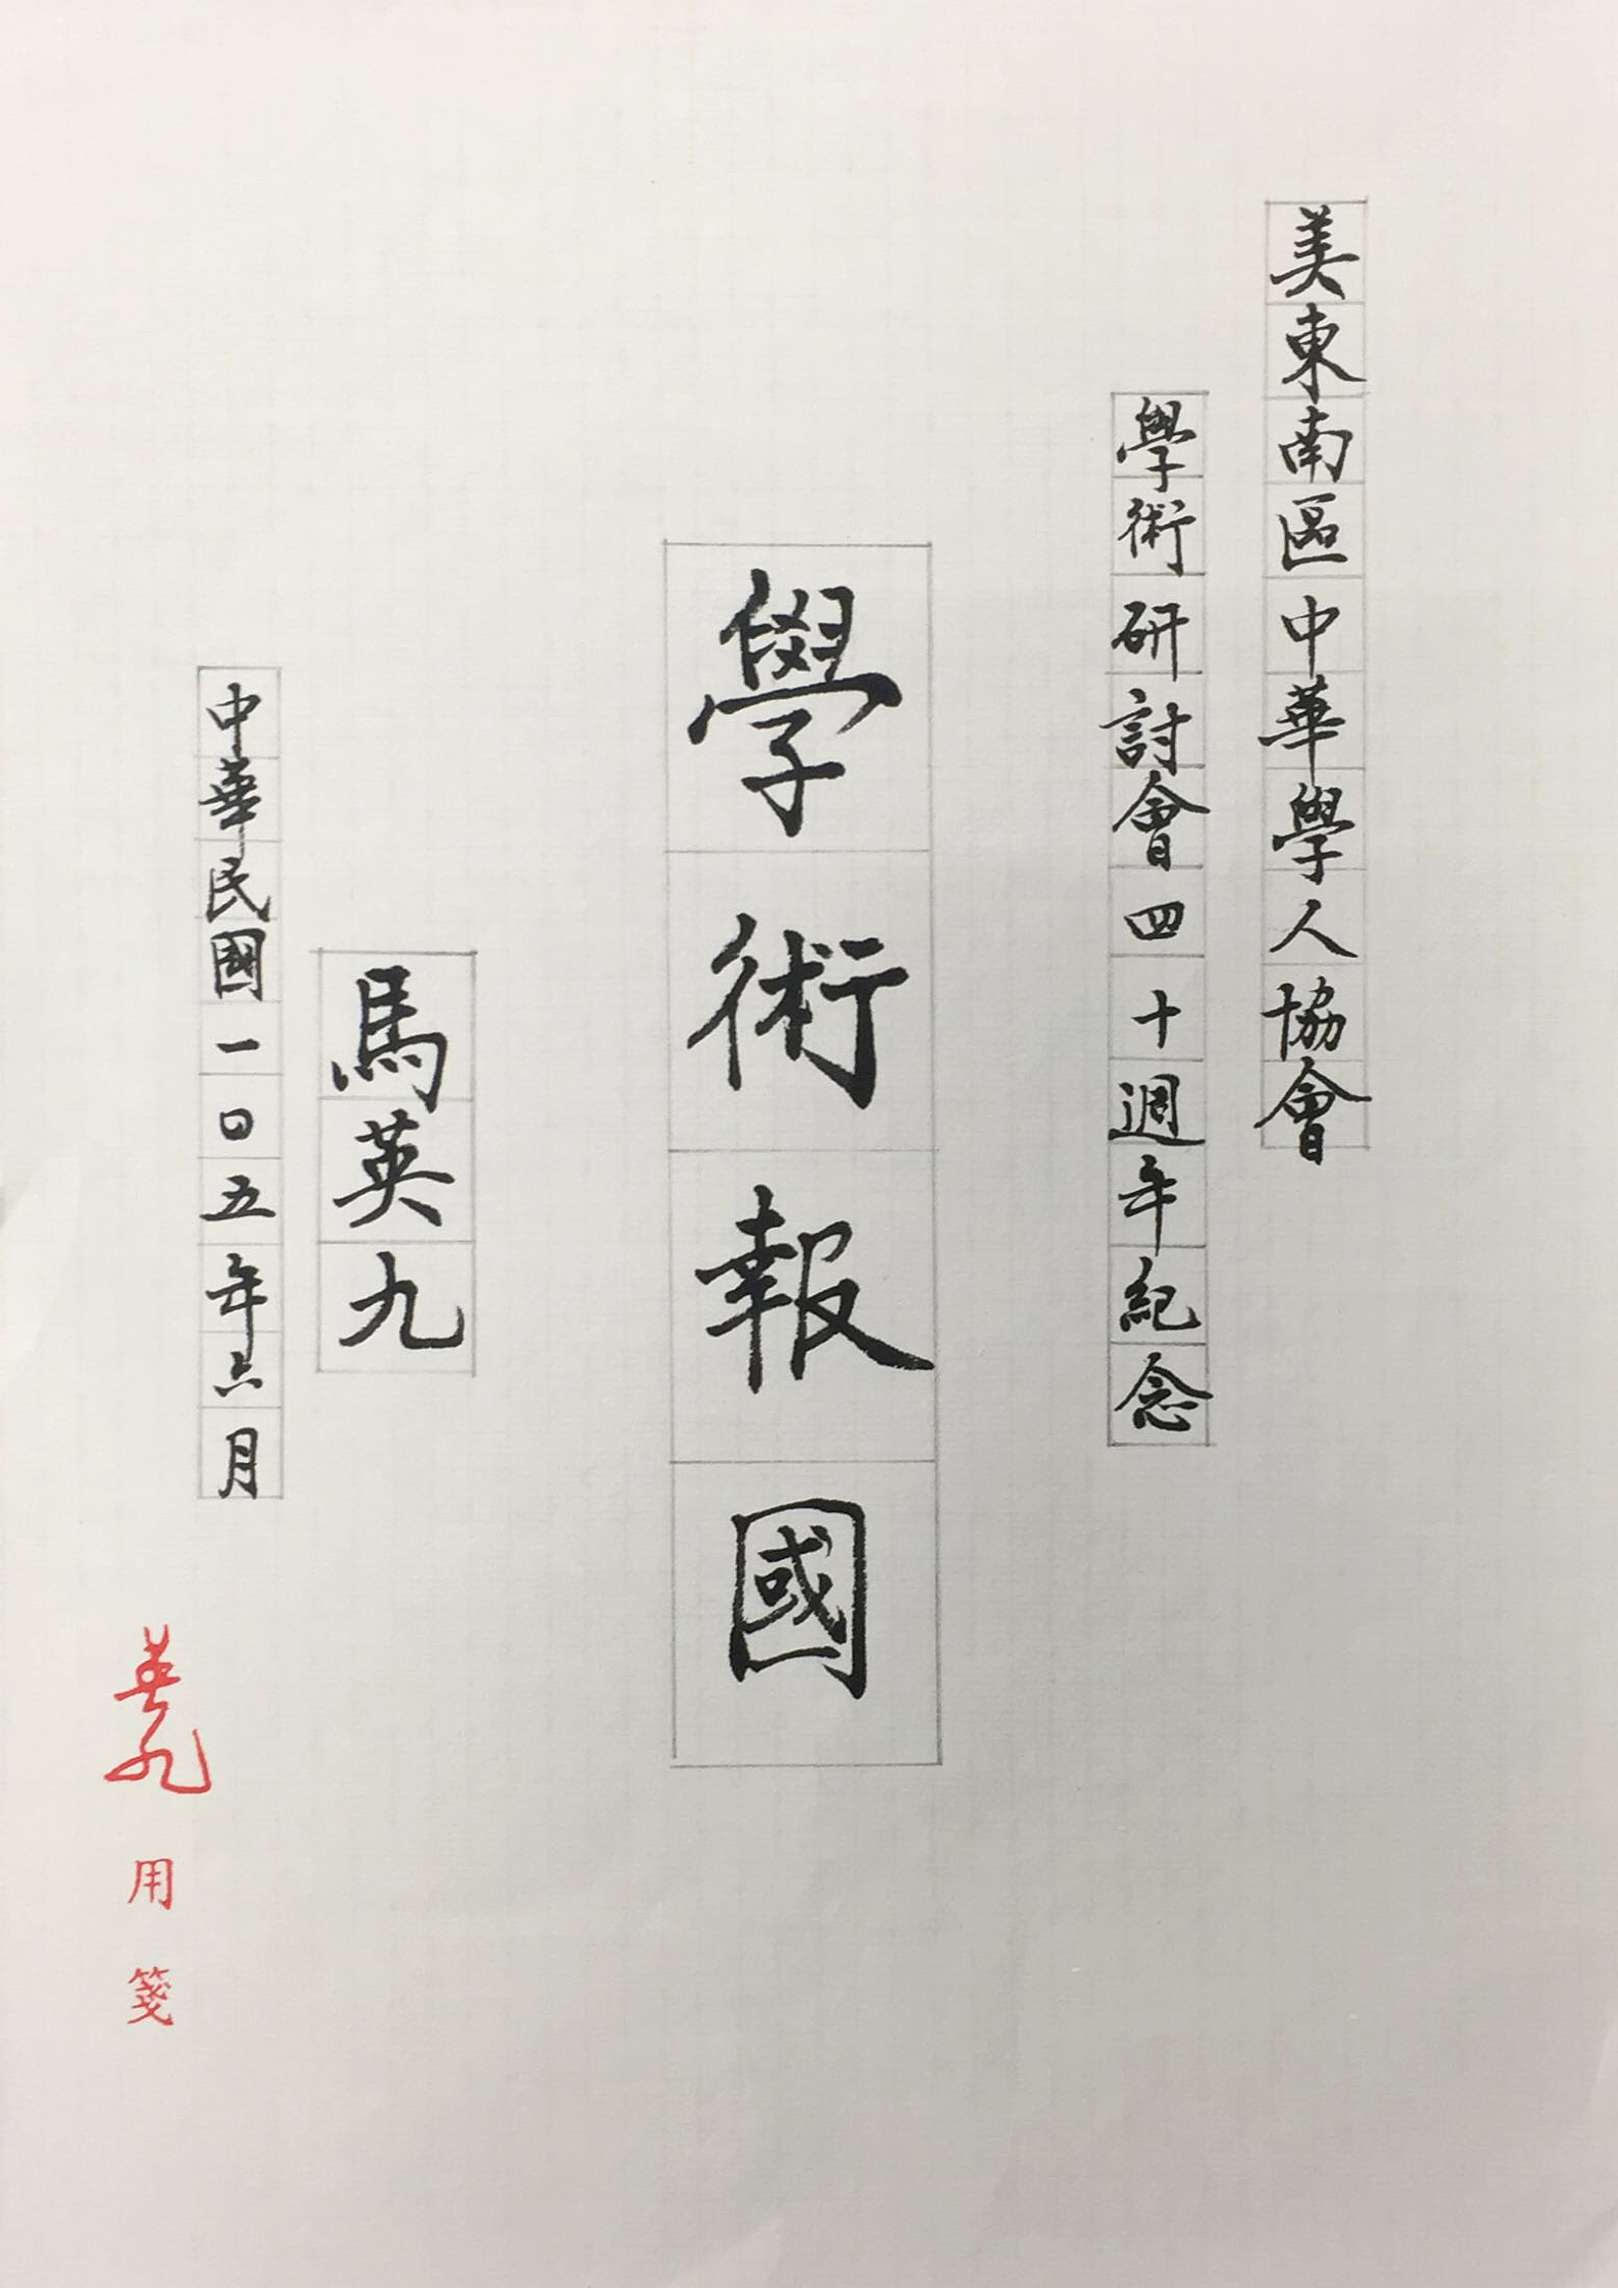 美東南區中華學人協會
學術研討會四十週年紀念
學術報國
馬英九
中華民國一〇五年六月
英九用箋